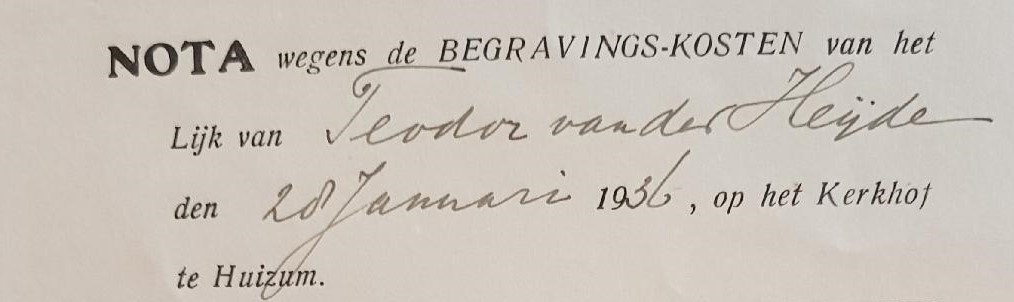 NOTA wegens de BEGRAVINGS-KOSTEN van het
Lijk van Teodor van der Heijde
den 28 Januari 1936, op het Kerkhof
te Huizum.